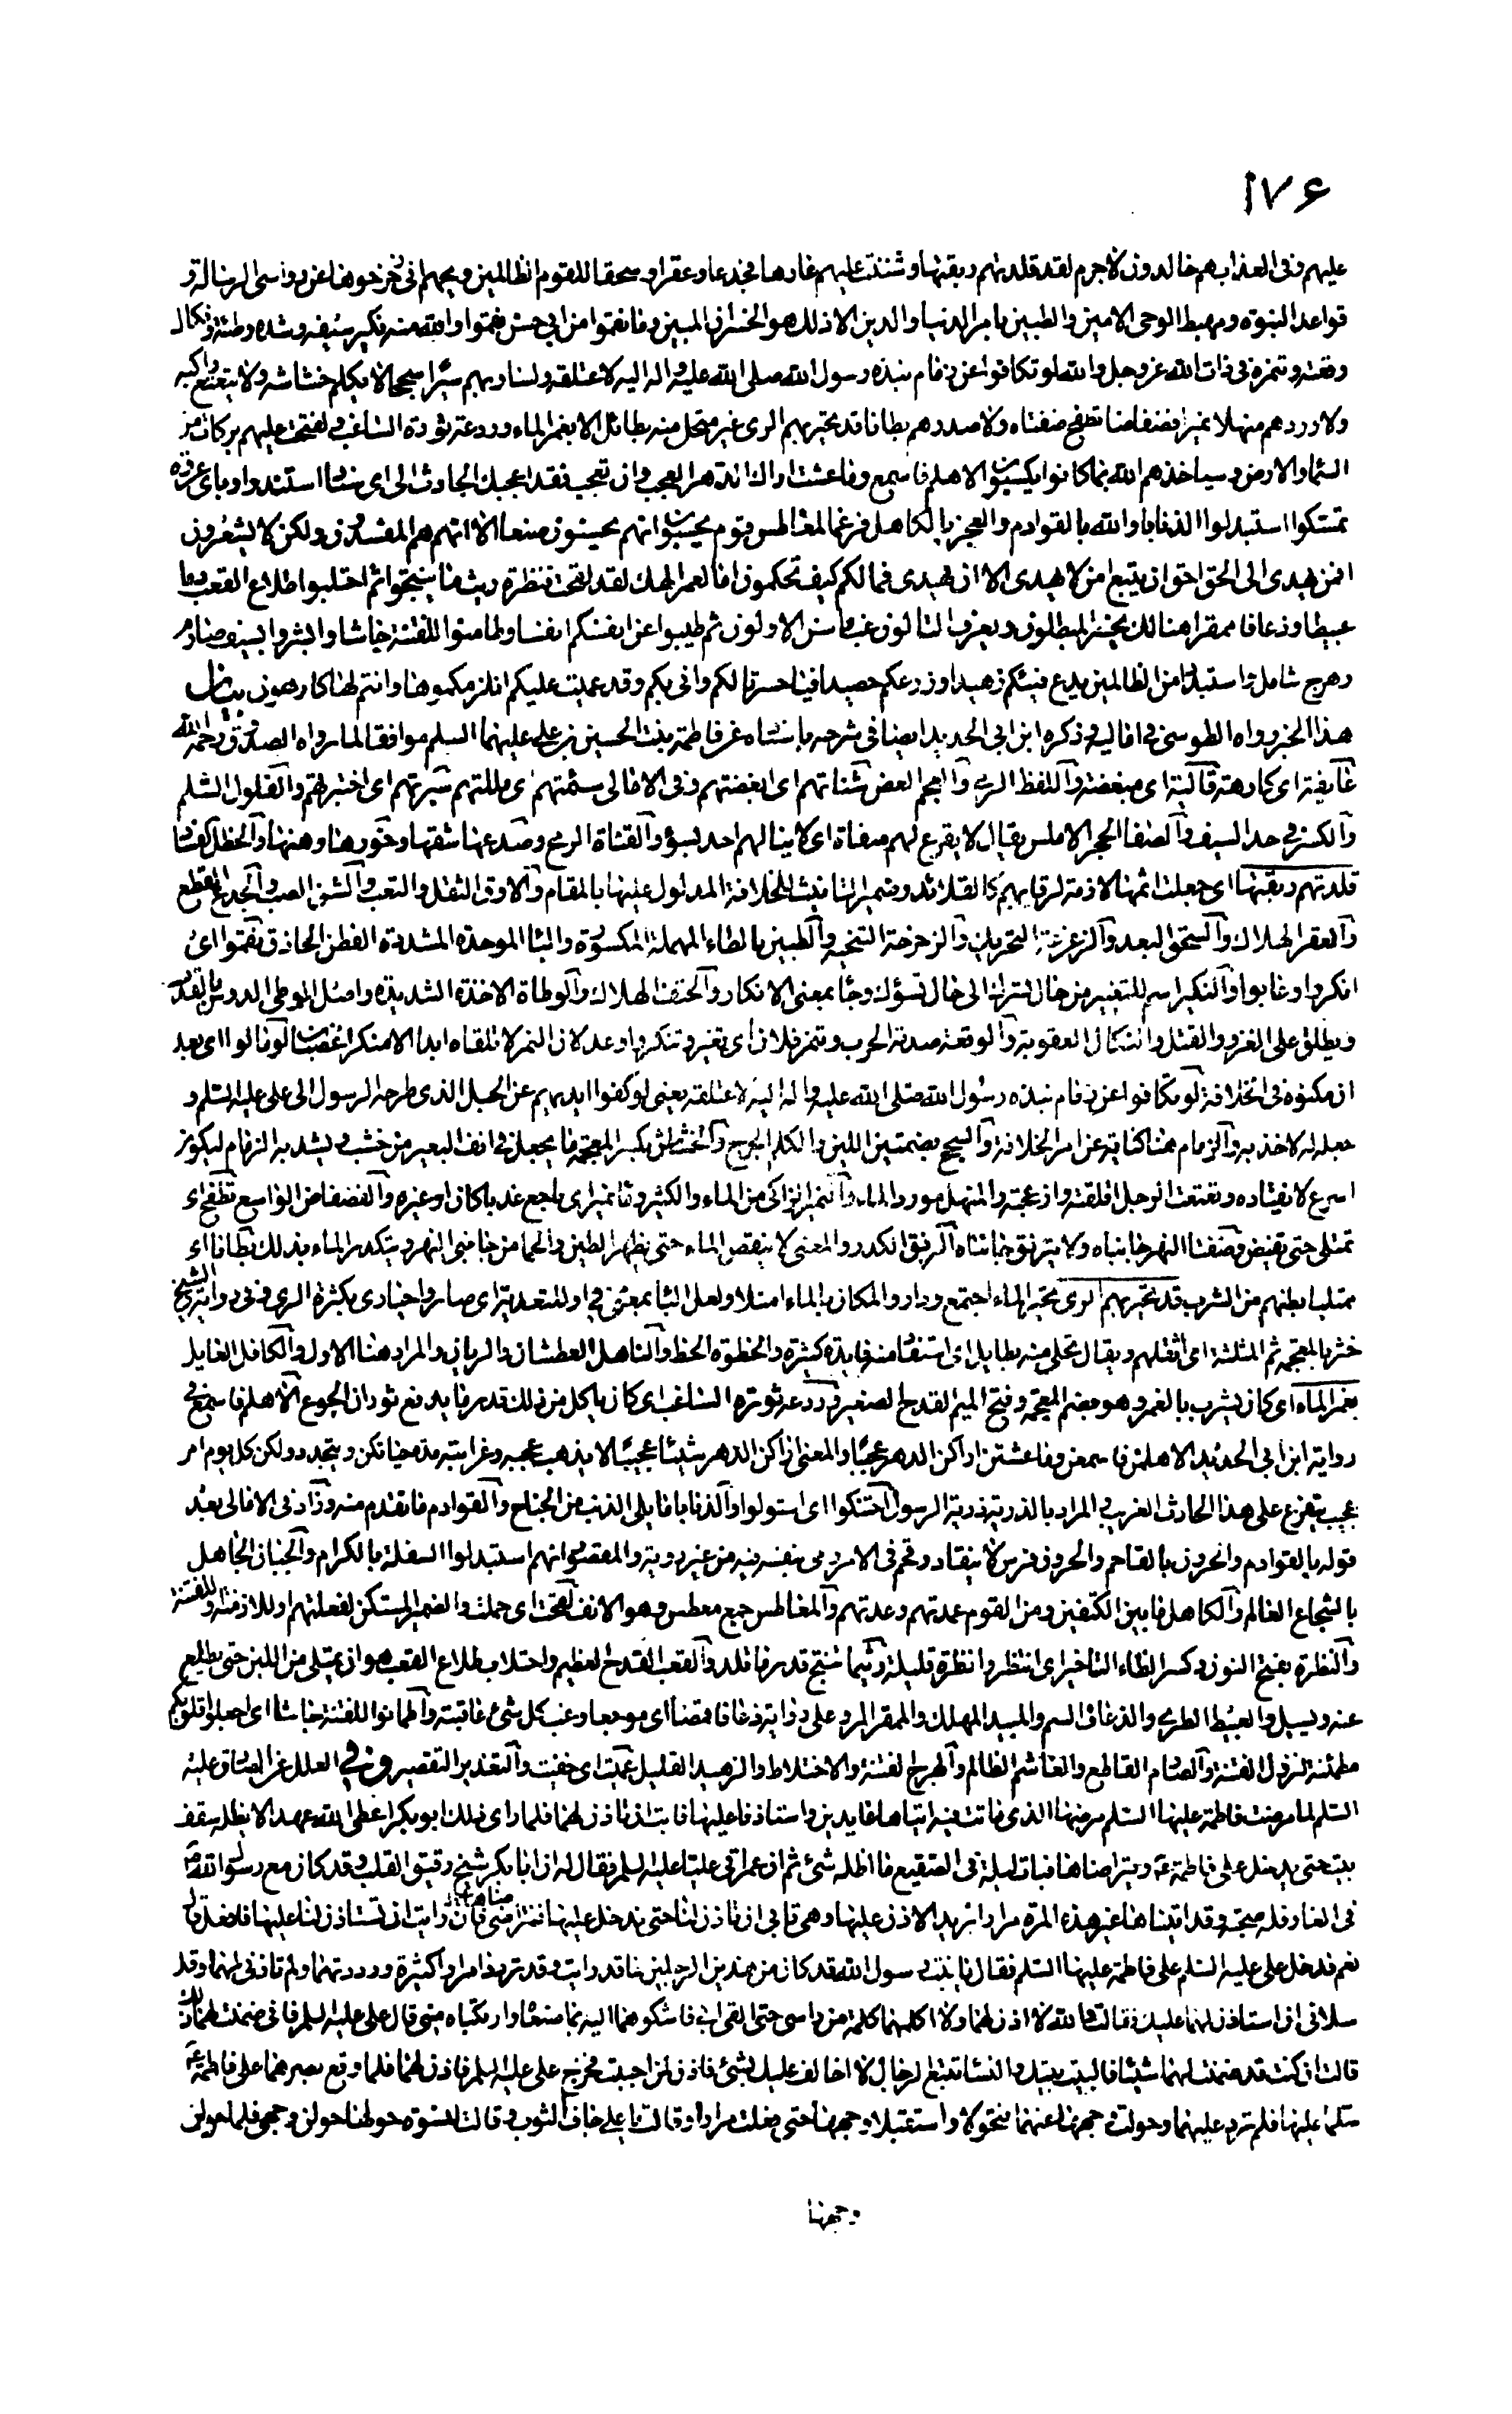 ١٧۶
عليهم وفى العذاب هم خالدون لاجرم لقد قلدتهم ربقتها وشننت عليهم غارها فجدعا وعقرا وسحقا للقوم الظالمين ويحهم انى زحزحوها عن رواسى الرسالة و
قواعد النبوة ومهبط الوحى الامين والطبين بامر الدنيا والدين الا ذلك هو الخسران المبين وما نقموا من ابى حسن نقموا والله منه نكير سيفه وشدة وطئته ونكال
وقعته وتنمره فى ذات الله عز وجل والله لو تكافوا عن زمام نبذه رسول الله صلى الله عليه واله اليه لاعتلقه ولسار بهم سيرا سجحا لا يكلم خشاشه ولا يتعتع راكبه
ولاوردهم منهلا نميرا فضفاضا تطفح ضفتاه ولاصدرهم بطانا قد تحير بهم الرى غير متحل منه بطائل الا بغمر الماء وردعه ثورة الساغب ولفتحت عليهم بركات من
السماء والارض وسياخذهم الله بما كانوا يكسبون الا هلم فاسمع وما عشت اراك الدهر العجب وان تعجب فقد اعجبك الحادث الى اى سناد استندوا وباى عروة
تمسكوا استبدلوا الذنابا والله بالقوادم والعجز بالكاهل فرغما لمعاطس قوم يحسبون انهم يحسنون صنعا الا انهم هم المفسدون ولكن لا يشعرون
افمن يهدى الى الحق احق ان يتبع امن لا يهدى الا ان يهدى فمالكم كيف تحكمون اما لعمر الهك لقد لقحت فنظرة ريث ما تنتجوا ثم احتلبوا طلاع القعب دما
عبيطا وذعافا ممقرا هنالك يخسر المبطلون ويعرف التالون غب ما سن الاولون ثم طيبوا عن انفسكم انفسا وطامنوا للفتنة جاشا وابشروا بسيف صارم
وهرج شامل واستبداد من الظالمين يدع فيئكم زهيدا وزرعكم حصيدا فيا حسرتا لكم وانى بكم وقد عميت عليكم انلزمكموها وانتم لها كارهون بيان
هذا الخبر رواه الطوسى فى اماليه وذكره ابن ابى الحديد ايضا فى شرحه باسناده عن فاطمة بنت الحسين بن على عليهما السلم موافقا لما رواه الصدوق رحمه الله
عايفة اى كارهة قالية اى مبغضة واللفظ الرمى والعجم العض شنأتهم اى ابغضتهم وفى الامالى سئمتهم اى مللتهم سبرتهم اى اختبرتهم والفلول الثلم
والكسر فى حد السيف والصفا الحجر الاملس يقال لا يقرع لهم صفاة اى لا ينالهم احد بسوء والقناة الرمح وصدعها شقها وخورها وهنها والخطل
قلدتهم ربقتها اى جعلت اثمها لازمة لرقابهم كالقلائد وضمير التانيث للخلافة المدلول عليها بالمقام والاوق الثقل والتعب والشن الصب والجدع القطع
والعقر الهلاك والسحق البعد والزعزعة التحريك والزحزحة التنحية والطبين بالطاء المهملة المكسورة والباء الموحدة المشددة الفطن الحاذق نقموا اى
انكروا وعابوا والنكير اسم للتغيير من حال تسرك الى حال تسوءك وجاء بمعنى الانكار والحتف الهلاك والوطاة الاخذة الشديدة واصل الوطى الدوس بالقدم
ويطلق على الغزو والقتل والنكال العقوبة والوقعة صدمة الحرب وتنمر فلان اى تغير وتنكر واوعد لان النمر لا تلقاه ابدا الا متنكرا غضبان لو مالوا اى بعد
ان مكنوه فى الخلافة لو تكافوا عن زمام نبذه رسول الله صلى الله عليه واله اليه لاعتلقه يعنى لو كفوا ايديهم عن الحبل الذى طرحه الرسول الى على عليه السلم و
جعله له لاخذ به والزمام هنا كناية عن امر الخلافة والسجح بضمتين اللين والكلم الجرح والخشاش بكسر المعجمة ما يجعل فى انف البعير من خشب يشد به الزمام ليكون
اسرع لانقياده وتعتعت الرجل اقلقته وازعجته والمنهل مورد الماء والنمير الزاكى من الماء والكثير وماء نمير اى ناجع عذبا كان او غيره والفضفاض الواسع تطفح اى
تمتلى حتى تفيض وضفتا النهر جانباه ولا يترنق جانباه الرنق الكدر والمعنى لا ينقص الماء حتى يظهر الطين والحما من جانبى النهر ويتكدر الماء بذلك بطانا اى
ممتليا بطنهم من الشرب قد تحير بهم الرى تحير الماء اجتمع ودار والمكان بالماء امتلا ولعل الباء بمعنى فى او للتعدية اى صاروا حيارى بكثرة الرى وفى رواية الشيخ
خثر بالمعجمة ثم المثلثة اى اثقلهم ويقال تحلى منه بطايل اى استفاد منه فايدة كثيرة والحظوة الحظ والناهل العطشان والريان والمراد هنا الاول والكافل العايل
بغمر الماء اى كان يشرب بالغمر وهو بضم المعجمة وفتح الميم القدح الصغير وردعه ثورة الساغب اى كان ياكل من ذلك قدر ما يدفع ثوران الجوع الا هلم فاسمع فى
رواية ابن ابى الحديد الا هلمن فاسمعن وما عشتن اراكن الدهر عجبا والمعنى اراكن الدهر شيئا عجيبا لا يذهب عجبه وغرابته مدة حياتكن ويتجدد ولكن كل يوم امر
عجيب يتفرع على هذا الحادث الغريب المراد بالذرية ذرية الرسول احتنكوا اى استولوا والذنابا ما يلى الذنب من الجناح والقوادم ما تقدم منه وزاد فى الامالى بعد
قوله بالقوادم والحرون بالقاحم والحرون فرس لا ينقاد وقحم فى الامر رمى بنفسه فيه من غير روية والمقصود انهم استبدلوا السفلة بالكرام والجبان الجاهل
بالشجاع العالم والكاهل ما بين الكتفين ومن القوم عمدتهم وعدتهم والمعاطس جمع معطس وهو الانف لقحت اى حملت والضمير المستكن لفعلتهم او للازمنة وللفتنة
والنظرة بفتح النون وكسر الظاء التاخير اى انتظروا نظرة قليلة وريثما تنتج قدر ما تلد والقعب القدح العظيم واحتلاب طلاع القعب هو ان يمتلى من اللبن حتى يطلع
عنه ويسيل والعبيط الطرى والذعاف السم والمبيد المهلك والممقر المر وعلى رواية ذعافا ممضا اى موجعا وغب كل شئ عاقبته واطمانوا للفتنة جاشا اى اجعلوا قلوبكم
مطمئنة لنزول الفتنة والصارم القاطع والغاشم الظالم والهرج الفتنة والاختلاط والزهيد القليل عميت اى خفيت والتعذير التقصير وفى العلل عن الصادق عليه
السلم لما مرضت فاطمة عليها السلم مرضها الذى ماتت فيه اتياها عايدين واستاذنا عليها فابت ان تاذن لهما فلما راى ذلك ابو بكر اعطى الله عهدا لا يظله سقف
بيت حتى يدخل على فاطمة ع ويتراضاها فبات ليلة فى الصقيع ما اظله شئ ثم ان عمر اتى عليا عليه السلم فقال له ان ابا بكر شيخ رقيق القلب وقد كان مع رسول الله ص
فى الغار فله صحبة وقد اتيناها غير هذه المرة مرارا نريد الاذن عليها وهى تابى ان تاذن لنا حتى ندخل عليها فنتراضى فان رايت ان تستاذن لنا عليها فافعل قال
نعم فدخل على عليه السلم على فاطمة عليها السلم فقال يا بنت رسول الله قد كان من هذين الرجلين ما قد رايت وقد تردا مرارا كثيرة ورددتهما ولم تاذنى لهما وقد
سالانى ان استاذن لهما عليك فقالت والله لا اذن لهما ولا اكلمهما كلمة من راسى حتى القى ابى فاشكوهما اليه بما صنعاه وارتكباه منى قال على عليه السلم فانى ضمنت لهما ذلك
قالت ان كنت قد ضمنت لهما شيئا فالبيت بيتك والنساء تتبع الرجال لا اخالف عليك بشئ فاذن لمن احببت فخرج على عليه السلم فاذن لهما فلما وقع بصرهما على فاطمة ع
سلما عليها فلم ترد عليهما وحولت وجهها عنهما فتحولا واستقبلا وجهها حتى فعلت مرارا وقالت يا على جاف الثوب وقالت لنسوة حولها حولن وجهى فلما حولن
وجهها